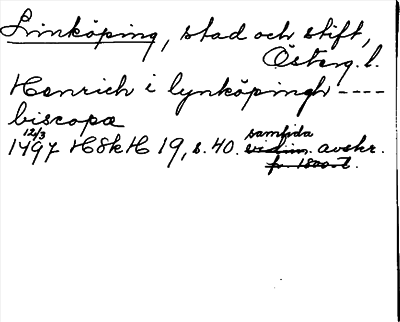 Linköping, stad och stift,
Österg. l.
Henrich i lynköpingh ----
biscopa
12/3 samtida
1497 HSkH 19, s. 40. vidim. avskr.
fr. 1800-t.